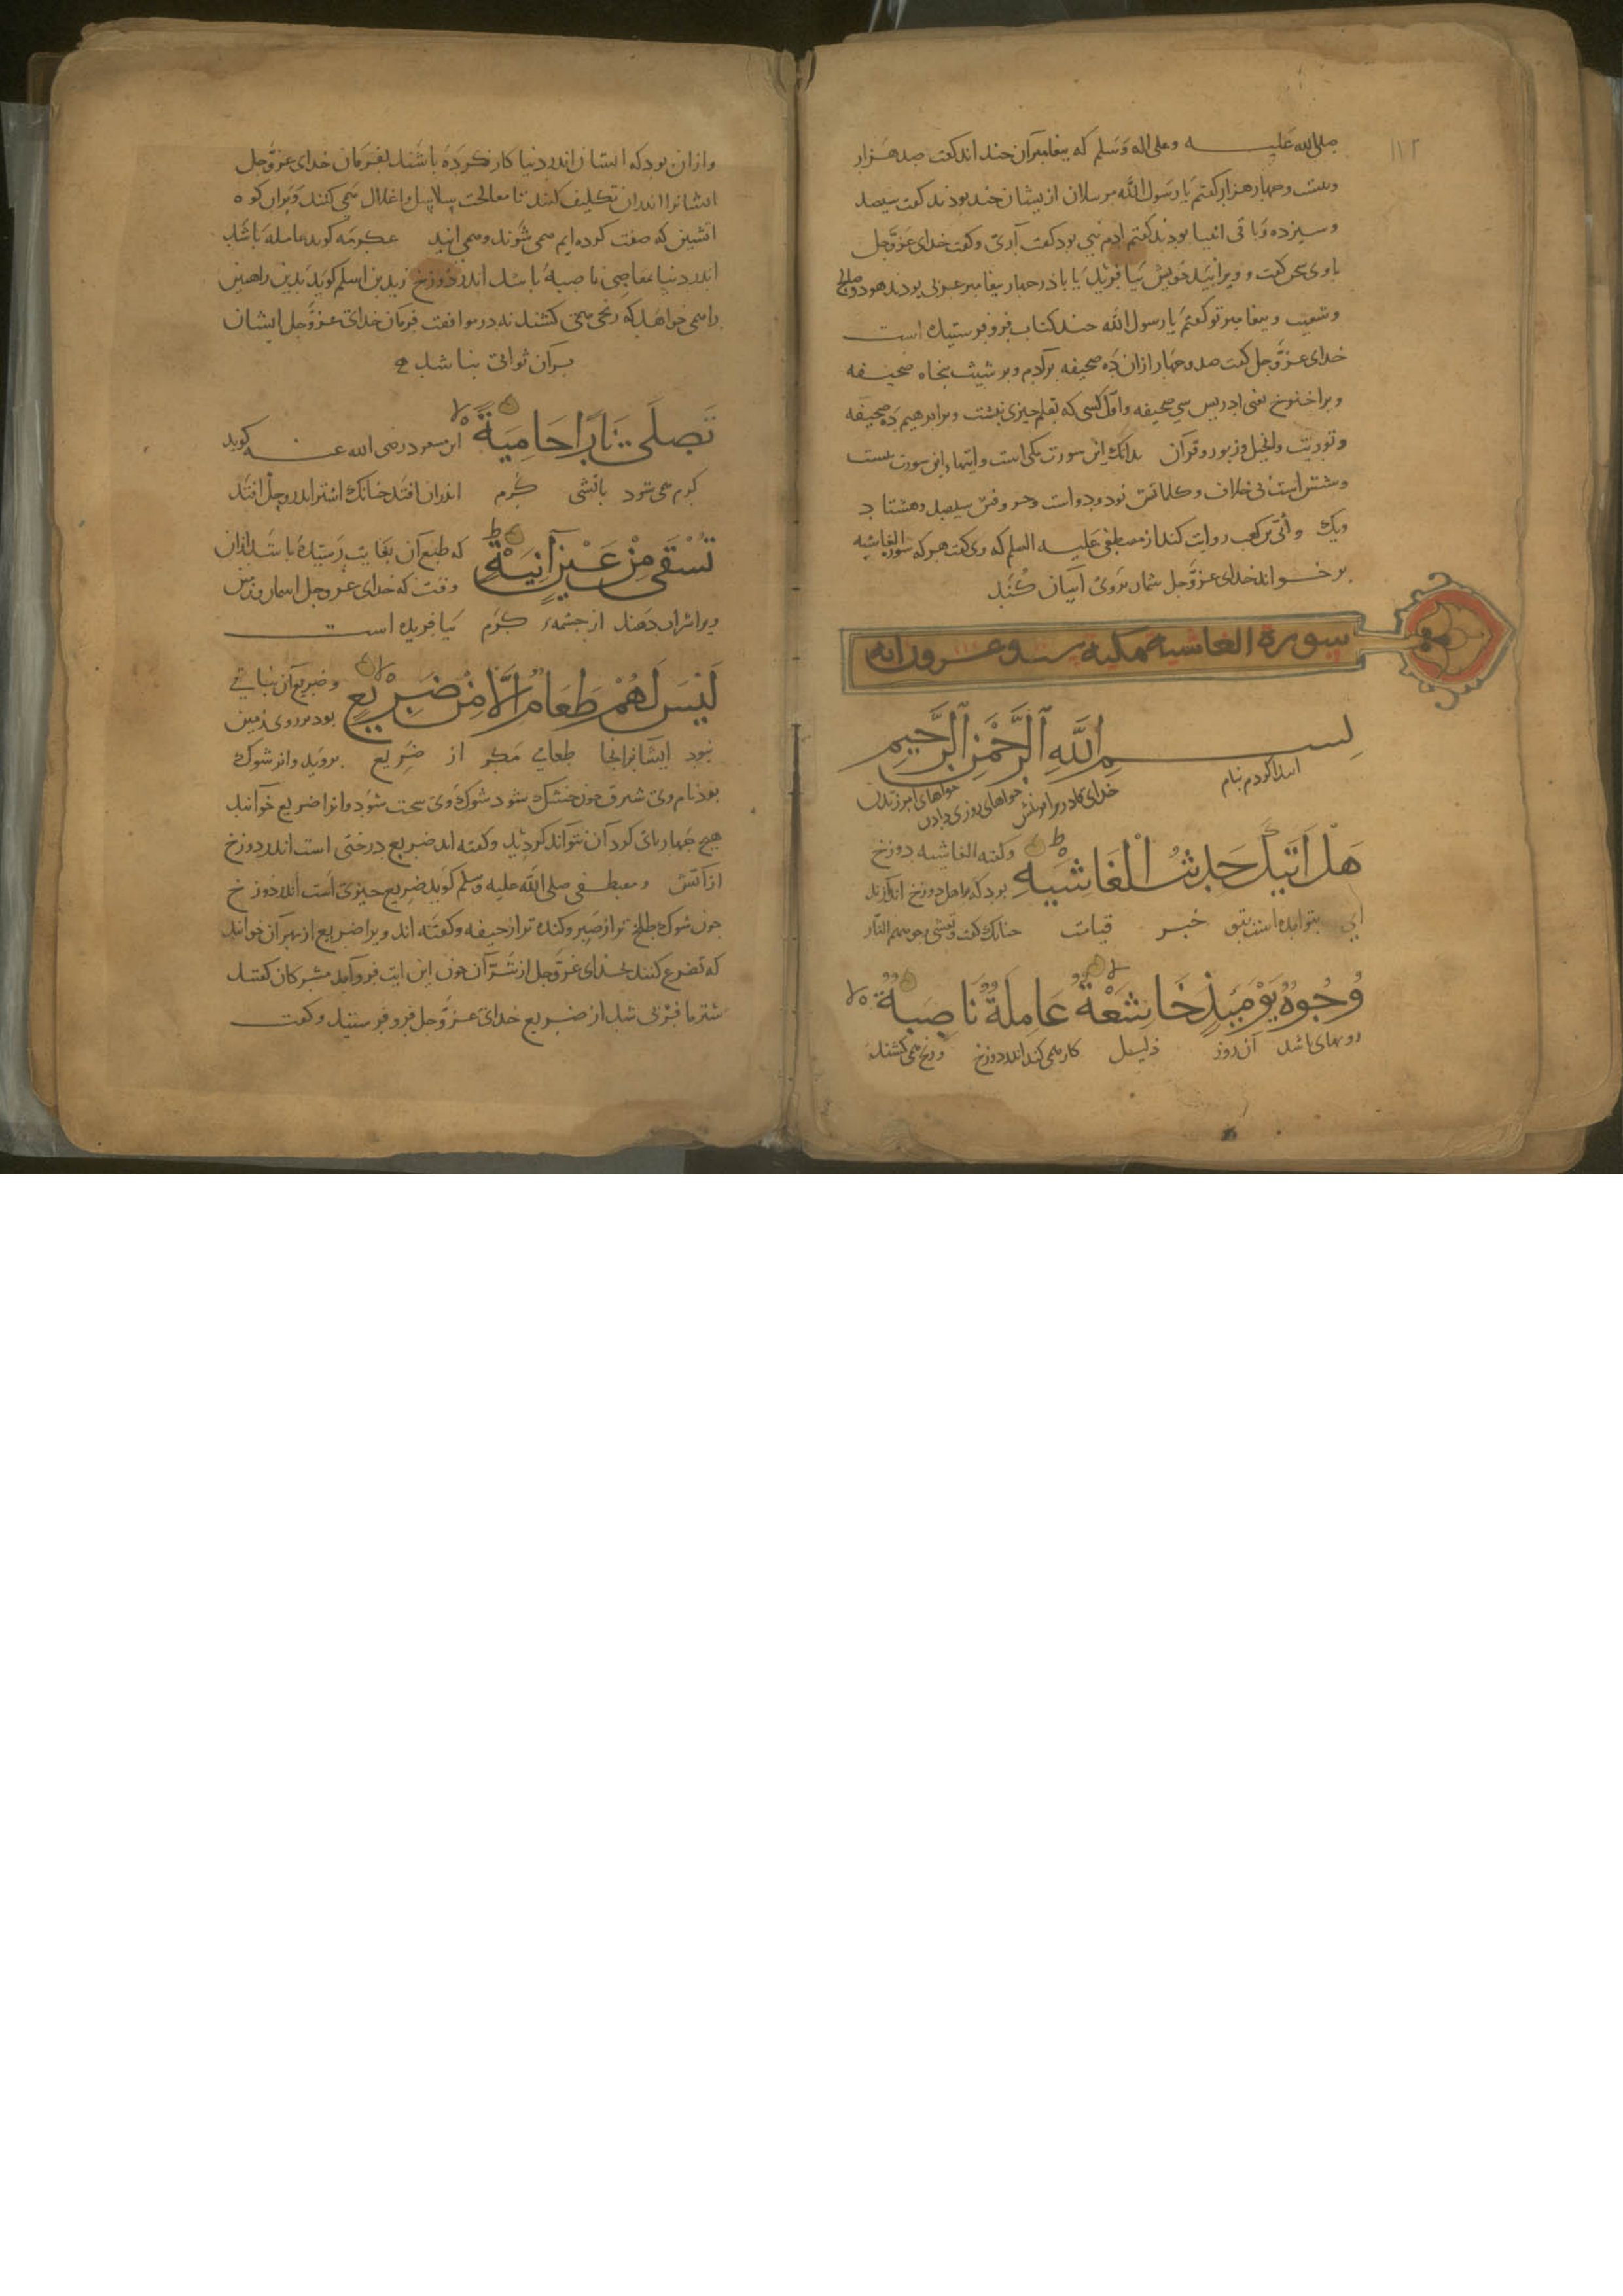 ۱۱۲
صلی الله علیه و علی اله وسلم که پیغامبران چند اند کفت صد هزار
و بیست و چهار هزار کفتم یا رسول الله مرسلان ازیشان چند بودند کفت سیصد
و سیزده و باقی انبیا بودند کفتم ادم نبی بود کفت آری و کفت خدای عزوجل
باوی سخن کفت و ویرا بید خویش بیافرید یا باذر چهار پیغامبر عربی بودند هود و صالح
و شعیب و پیغامبر تو کفتم یا رسول الله چند کتاب فرو فرستیده است
خدای عزوجل کفت صد و چهار ازان ده صحیفه بر آدم و بر شیث پنجاه صحیفه
و بر اخنوخ یعنی ادریس سی صحیفه و اول کسی که بقلم چیزی نبشت و بر ابرهیم ده صحیفه
و توریت و انجیل و زبور و قرآن بدانک این سورت مکی است و ایتهاء این سورت بیست
و شش است بی خلاف و کلماتش نود و دو است و حروفش سیصد و هشتاد
و یک و ابی بن کعب روایت کند از مصطفی علیه السلم که وی کفت هر که سورة الغاشیه
بر خواند خدای عزوجل شمار بروی آسان کند
سورة الغاشیة مکیة ست و عشرون ایه
بسم الله الرحمن الرحیم
ابتدا کردم بنام خدای کادر بر آفرینش خواهای روزی دادن خواهای امرزیدن
هَلْ اَتَیكَ حَدِیثُ الْغَاشِیَهِ و کفته الغاشیه دوزخ
بود که بر اهل دوزخ اندازند
ای بتو آمده است بتو خبر قیامت چنانک کفت و تغشی وجوههم النار
وُجُوهٌ یَوْمَئِذٍ خَاشِعَةٌ عَامِلَةٌ نَاصِبَةٌ
رویهای باشد آن روز ذلیل کار می کند اندر دوزخ و رنج می کشند
و ازان بود که ایشان اندر دنیا کار نکرده باشند بفرمان خدای عزوجل
ایشانرا اندران تکلیف کنند تا معالجت سلاسل و اغلال می کنند و بران کوه
اتشین که صفت کرده ایم می شوند و می ایند عکرمه کوید عامله باشد
اندر دنیا بمعاصی ناصبه باشد اندر دوزخ زید بن اسلم کوید بدین راهبین
را می خواهد که رنجی می کشند نه در موافقت فرمان خدای عزوجل ایشان
بران ثوابی نباشد
تَصلَی نَارًا حَامِیَةً ابن مسعود رضی الله عنه کوید
کرم می شود باتشی کرم اندران افتد چنانک اشتر اندر وحل افتد
تُسْقَی مِنْ عَیْنٍ آنِیَةٍ که طبع آن بغایت رسیده باشد ازان
وقت که خدای عزوجل اسمان و زمین
ویرا شراب دهند از چشمهء کرم بیافریده است
لَیْسَ لَهُمْ طَعَامٌ اِلَّا مِنْ ضَرِیْعٍ و ضریع آن نباتی
بود بر روی زمین
نبود ایشانرا انجا طعامی مکر از ضریع بروید وانر شوک
بود نام وی شبرق چون خشک شود شوک وی سخت شود و انرا ضریع خوانند
هیچ چهار پای کرد آن نتواند کردید و کفته اند ضریع درختی است اندر دوزخ
از آتش و مصطفی صلی الله علیه وسلم کوید ضریع چیزی است اندر دوزخ
چون شوک طلخ تر از صبر و کنده تر از جیفه و کفته اند ویرا ضریع از بهر آن خوانند
که تضرع کنند بخدای عزوجل از شر آن چون این ایت فرو آمد مشرکان کفتند
شتر ما فربی شد از ضریع خدای عزوجل فرو فرستید و کفت